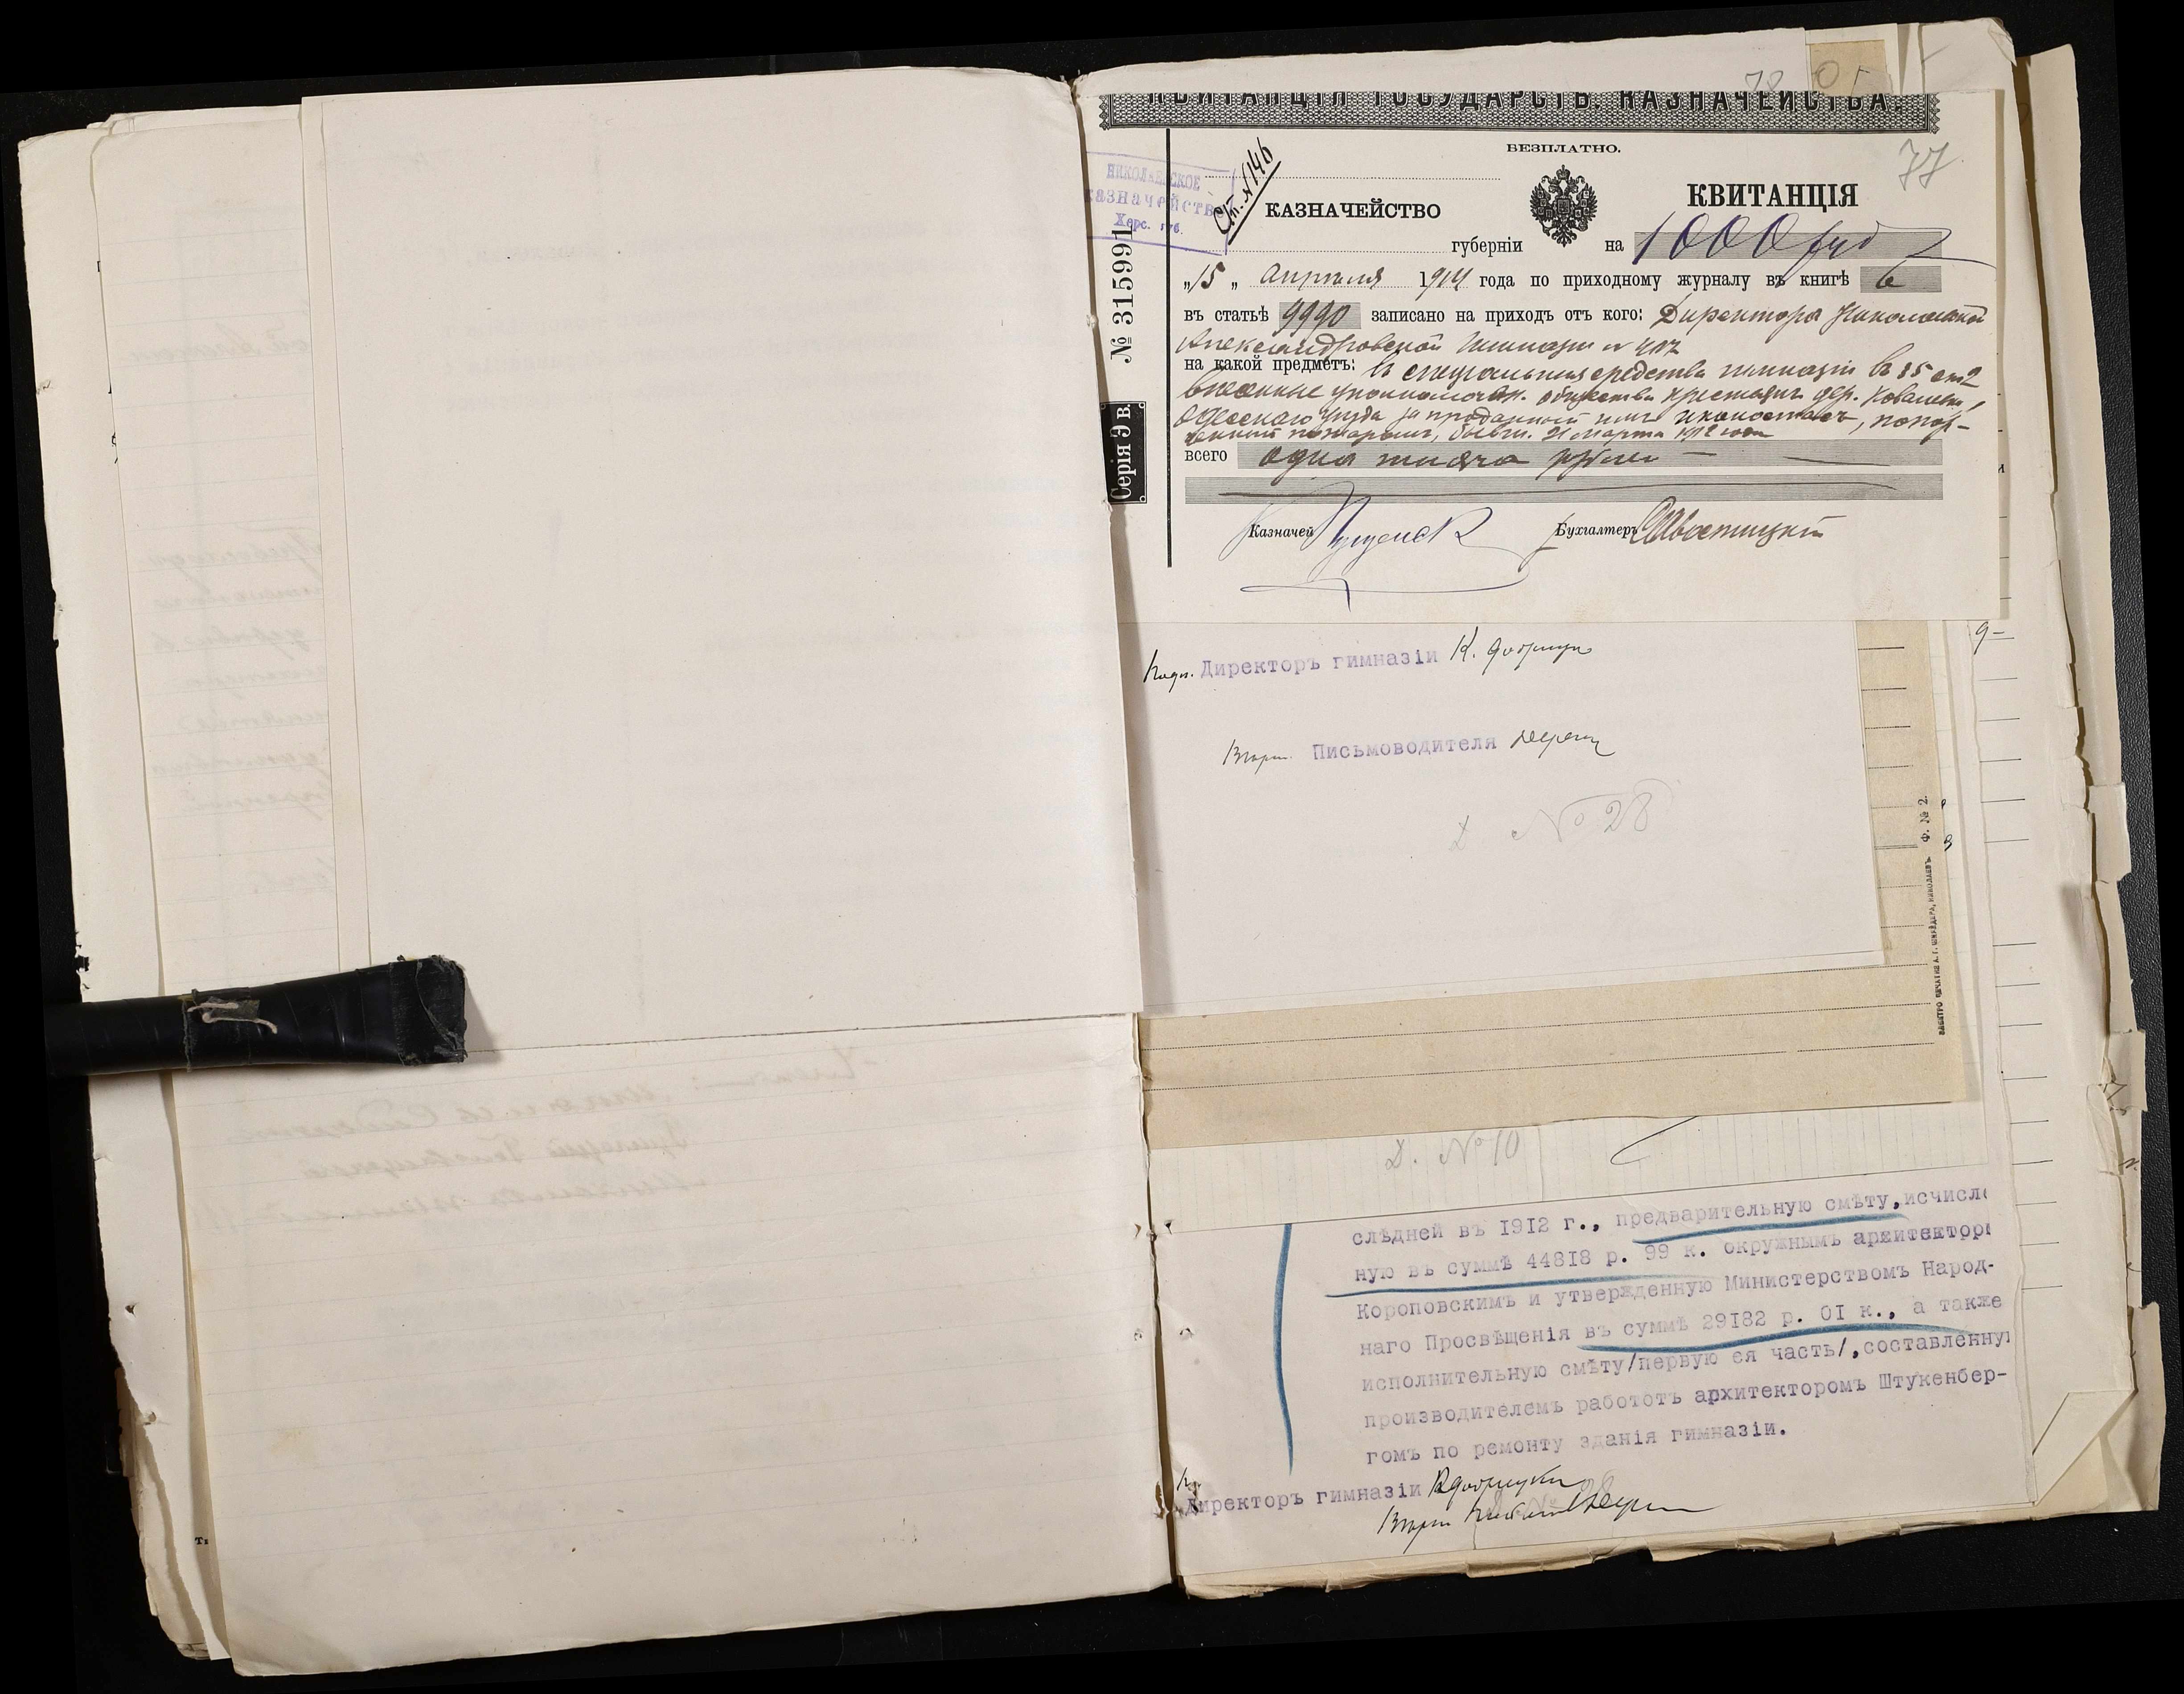 78
КВИТАНЦІЯ ГОСУДАРСТВ. КАЗНАЧЕЙСТВА.
БЕЗПЛАТНО.
77
НИКОЛАЕВСКОЕ
казначейств
Херс. губ.
Ст. №146
КАЗНАЧЕЙСТВО
КВИТАНЦІЯ
губерніи
на 1000 руб
№ 315991
Серія Э в.
„15„ апрѣля 1914 года по приходному журналу въ книгѣ 6
въ статьѣ 9990 записано на приходъ отъ кого: Директора Николаевской
Александровской гимназіи №
на какой предметъ: въ спеціальныя средства гимназіи
внесенные уполномочен. общества крестьянъ дер. Ковалевки,
Одесскаго уѣзда за проданный имъ иконостасъ, попор-
ченный пожаромъ, бывш. 21 марта 1912 года
всего одна тысяча рублей
Казначей
Бухгалтеръ
Подп. Директоръ гимназіи К.
Письмоводителя
Д №28
ЭЛЕКТРО ПЕЧАТНЯ А. Г. ШНЕЙДЕРА, НИКОЛАЕВЪ. Ф. № 2.
Д. №10
слѣдней въ 1912 г., предварительную смѣту,исчисле
ную въ суммѣ 44818 р. 99 к. окружнымъ архитекторо
Короповскимъ и утвержденную Министерствомъ Народ-
наго Просвѣщенія въ суммѣ 29182 р. 01 к., а также
исполнительную смѣту/первую ея часть/,составленну
производителемъ работотъ архитекторомъ Штукенбер-
гомъ по ремонту зданія гимназіи.
Директоръ гимназіи